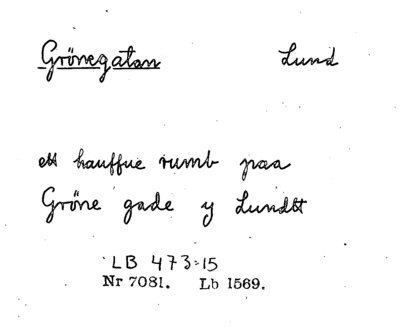 Grönegatan Lund
ett hauffue rumb paa
Gröne gade y Lundtt
LB 473:15
Nr 7081. Lb 1569.